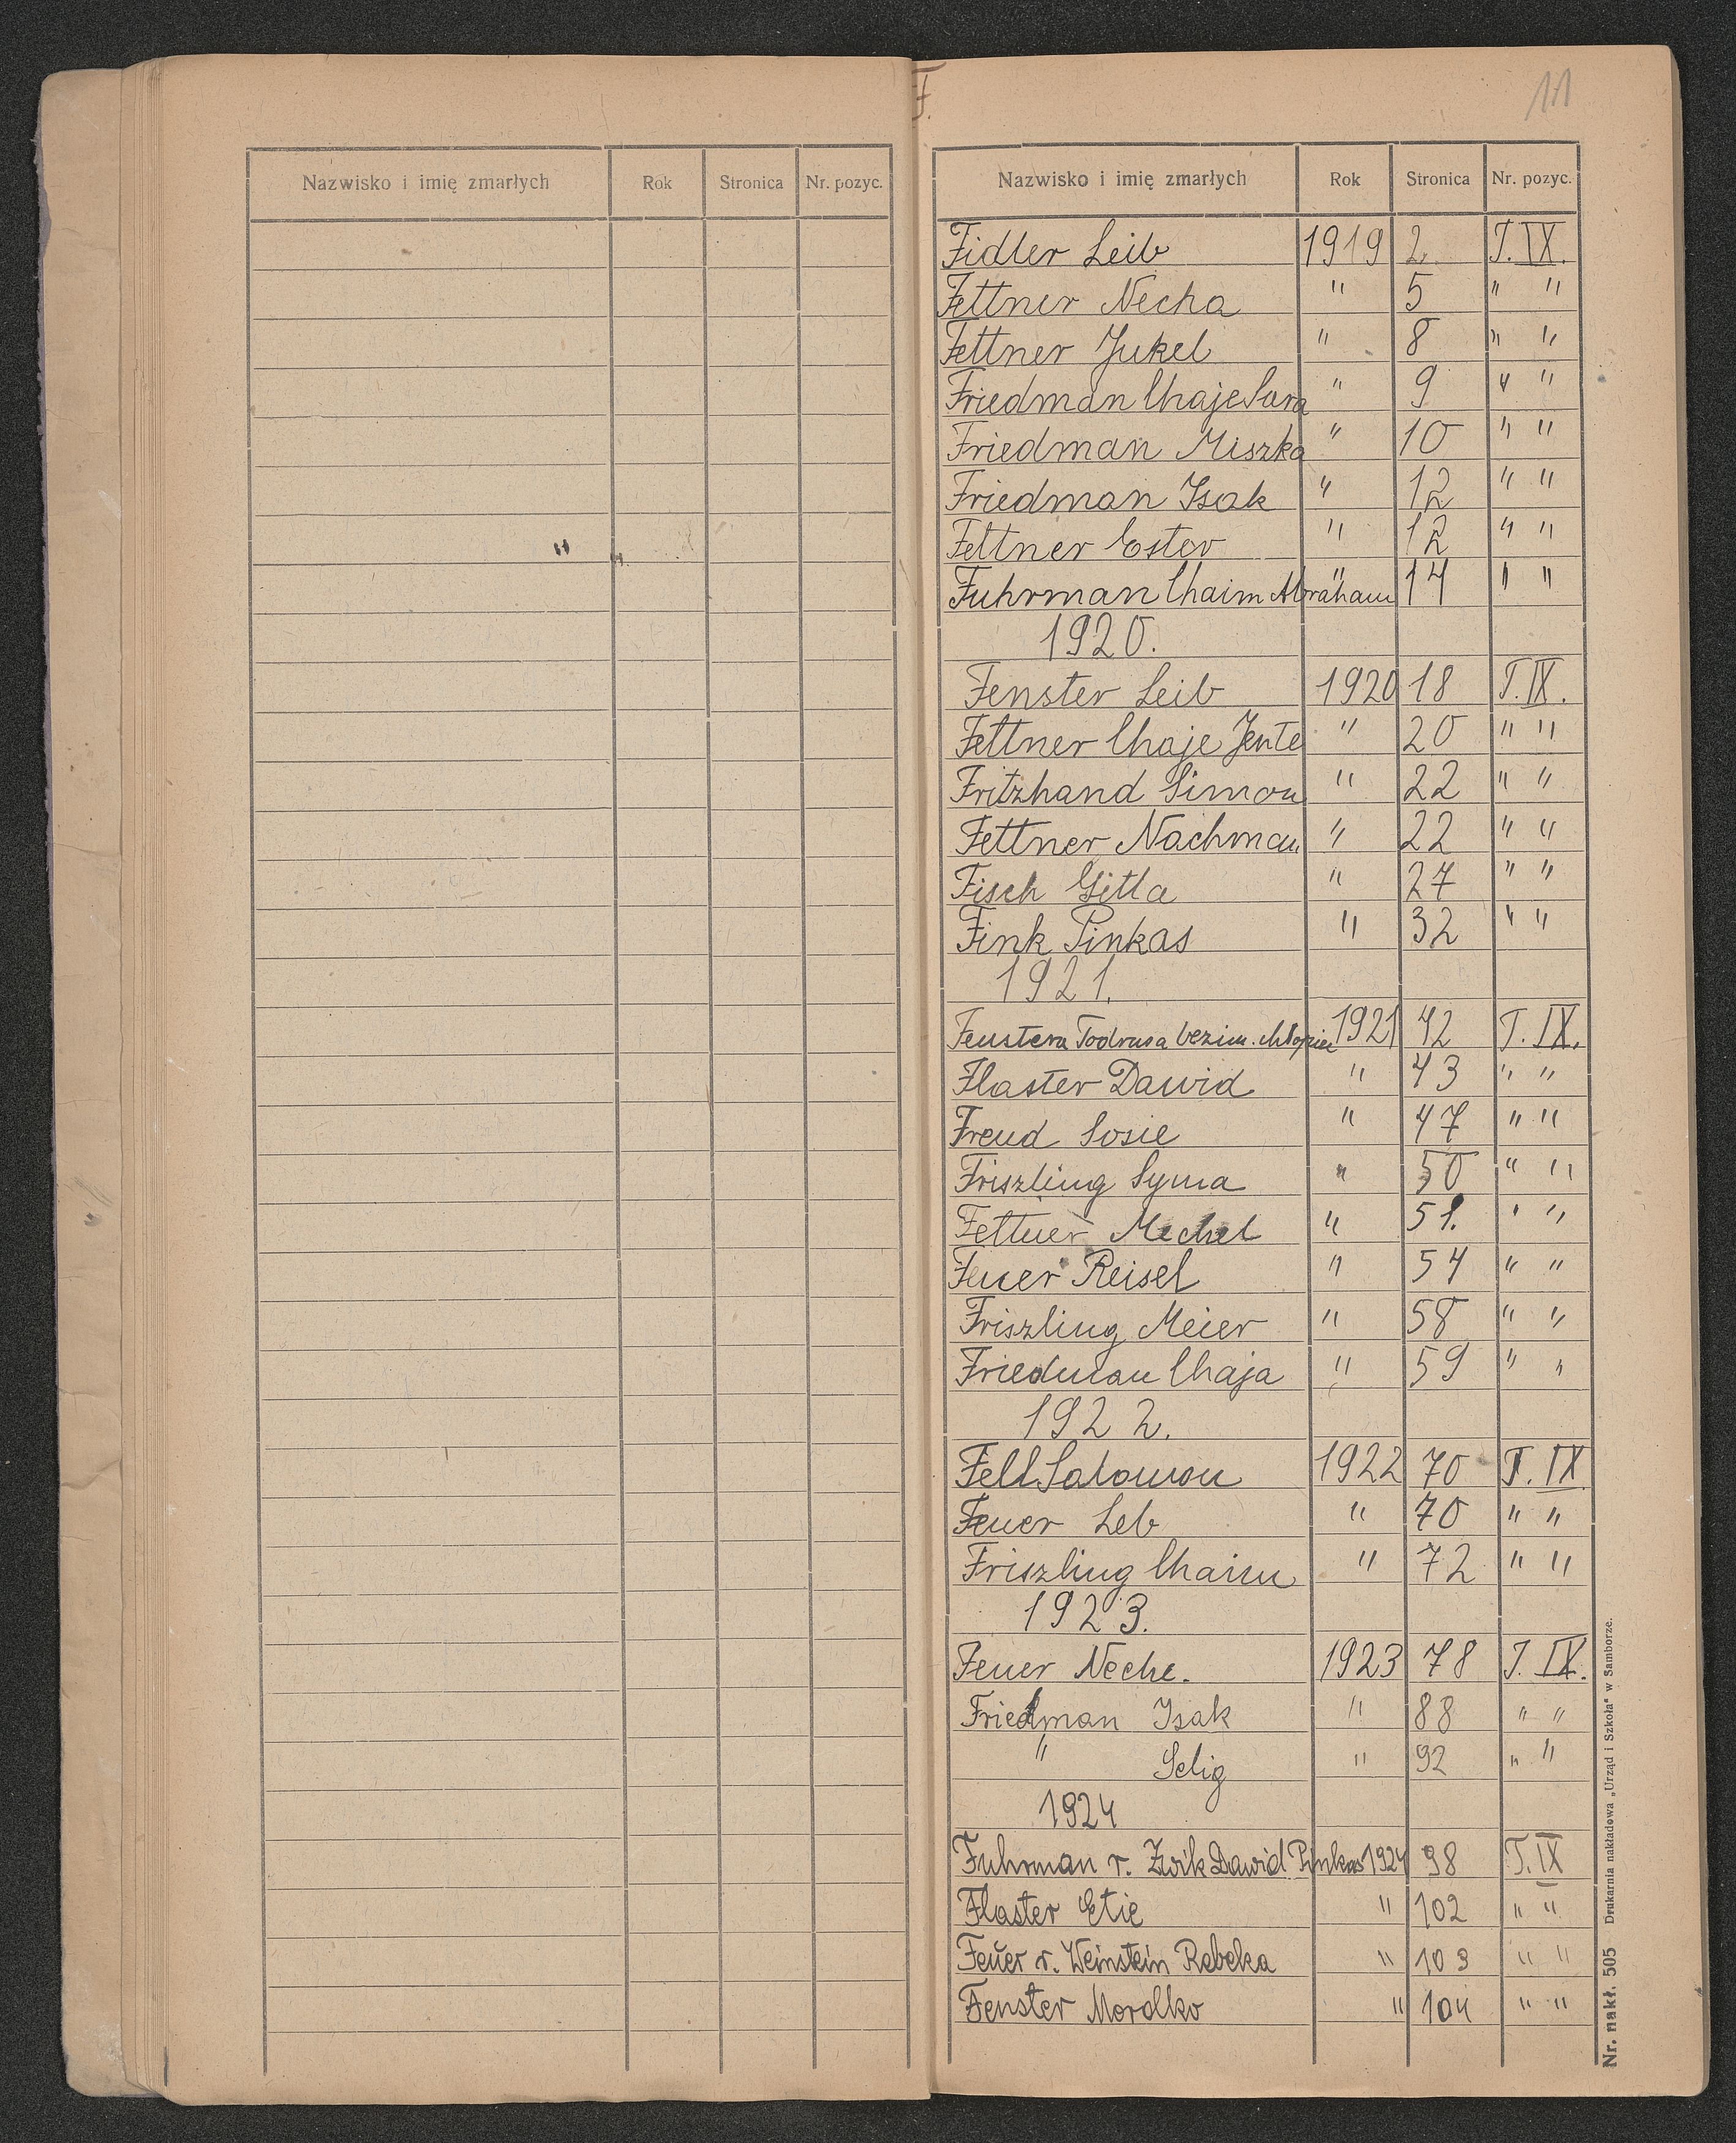 Nazwisko i imię zmarłych Rok Stronica Nr. pozyc.
" "
F.
11
Nazwisko i imię zmarłych Rok Stronica Nr. pozyc.
Fidler Leib 1919 2 T. IX.
Fettner Necha " 5 " "
Fettner Jukel " 8 " "
Friedman Chaje Sara " 9 " "
Friedman Miszka " 10 " "
Friedman Isak " 12 " "
Fettner Ester " 12 " "
Fuhrman Chaim Abraham " 14 " "
1920.
Fenster Leib 1920 18 T. IX.
Fettner Chaje Jente " 20 " "
Fritzhand Simon " 22 " "
Fettner Nachman " 22 " "
Fisch Gitla " 27 " "
Fink Pinkas " 32 " "
1921.
Fenstera Todrusa bezim. chłopiec 1921 42 T. IX.
Flaster Dawid " 43 " "
Freud Sosie " 47 " "
Friszling Syma " 50 " "
Fettner Mechel " 51. " "
Feuer Reisel " 54 " "
Friszling Meier " 58 " "
Friedman Chaja " 59 " "
1922.
Fell Salomon 1922 70 T. IX
Feuer Leb " 70 " "
Friszling Chaim " 72 " "
1923.
Feuer Neche. 1923 78 T. IX.
Friedman Isak " 88 " "
" Selig " 92 " "
1924
Fuhrman r. Zwik Dawid Pinkas 1924 98 T. IX
Flaster Etie " 102 " "
Feuer r. Weinstein Rebeka " 103 " "
Fenster Mordko " 104 " "
Nr. nakł. 505 Drukarnia nakładowa „Urząd i Szkoła" w Samborze.